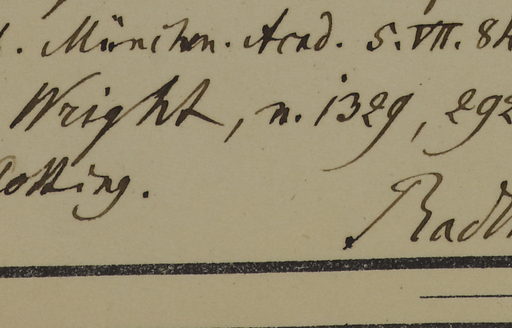 . München. Acad. 5. VII. 84
Wright, n. 1329, 292
Gotting.
Radlk